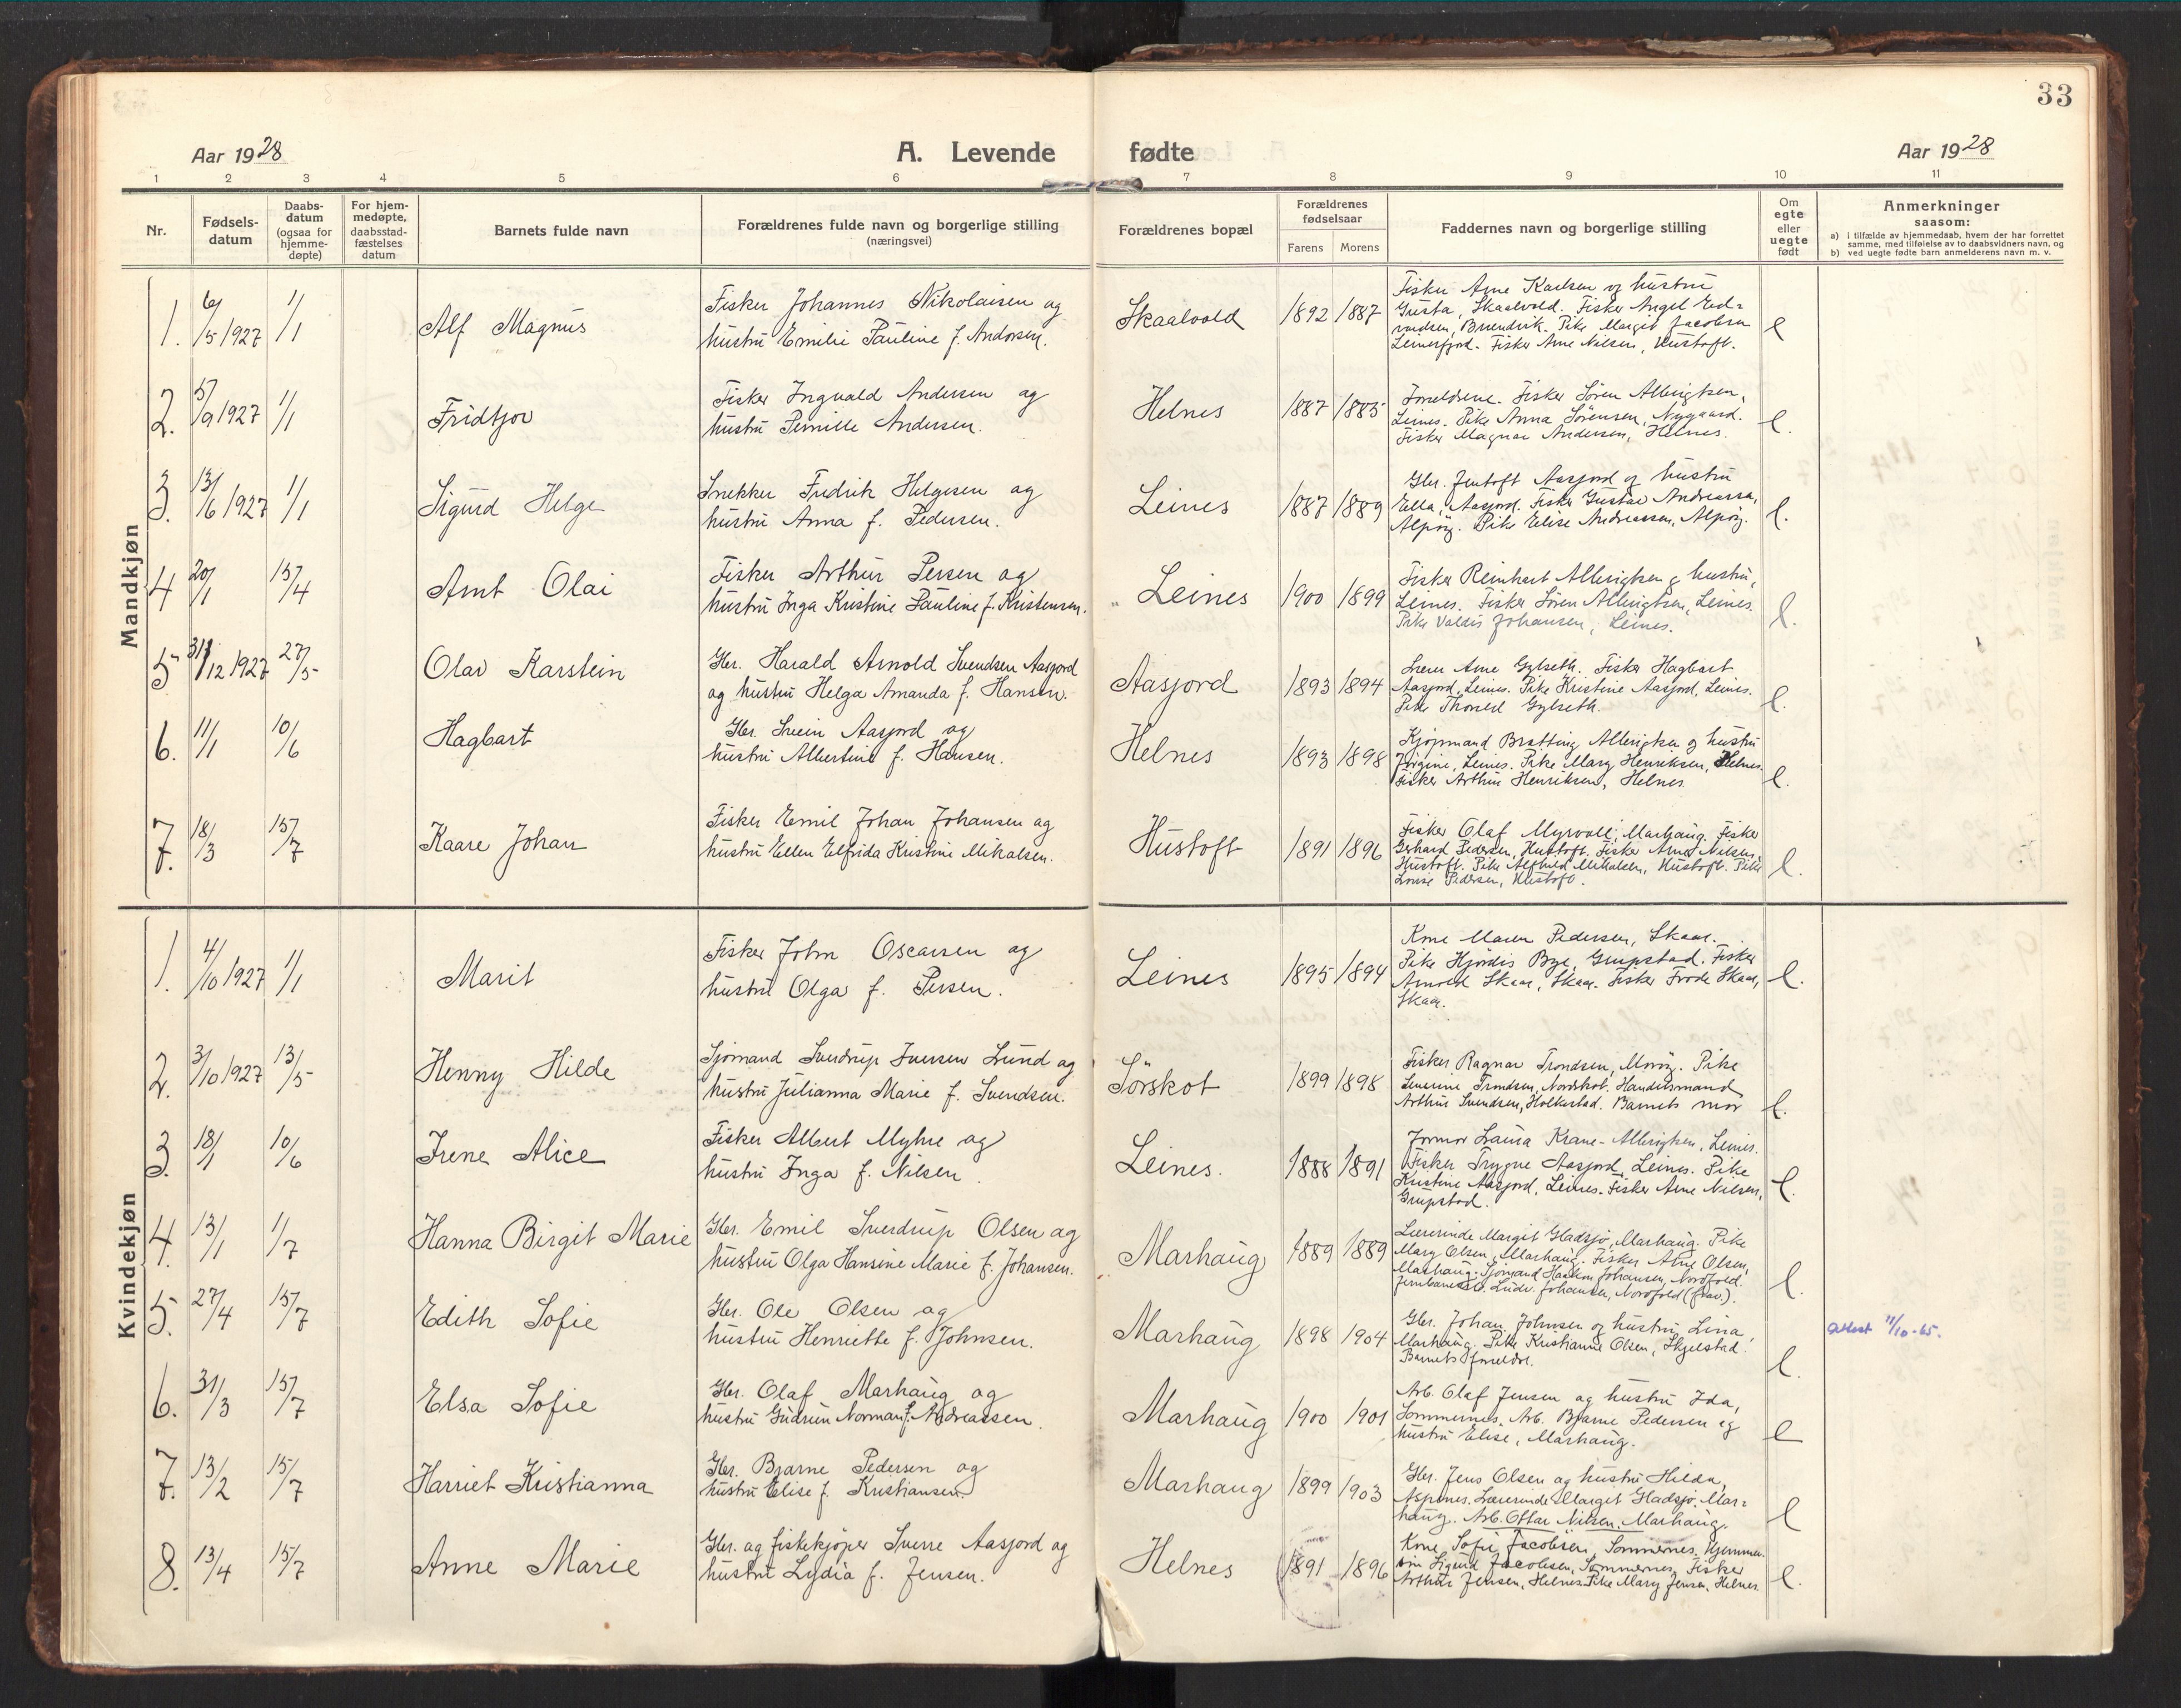 33
Aar 1928
A. Levende fødte
Aar 1928
1 2 3 4 5 6 7 8 9 10 11
Nr.
Fødsels-
datum
Daabs-
datum
(ogsaa for
hjemme-
døpte)
For hjem-
medøpte,
daabsstad-
fæstelses
datum
Barnets fulde navn
Forældrenes fulde navn og borgerlige stilling
(næringsvei)
Forældrenes bopæl
Forældrenes
fødselsaar
Farens Morens
Faddernes navn og borgerlige stilling
Om
egte
eller
uegte
født
Anmerkninger
saasom:
a) i tilfælde av hjemmedaab, hvem der har forrettet
samme, med tilføielse av to daabsvidners navn, og
b) ved uegte fødte barn anmelderens navn m. v.
Mandkjøn
1. 6/5 1927 1/1 Alf Magnus
Fisker Johannes Nikolaisen og
hustru Emilie Pauline f. Andorsen.
Skaalvold 1892 1887
Fisker Arne Karlsen og hustru
Gusta, Skaalvold. Fisker Angel Ed-
vardsen, Brændvik. Pike Margit Jacobsen
Leinesfjord. Fisker Arne Nilsen, Hustoft.
e
2. 5/9 1927 1/1 Fridtjov
Fisker Ingvald Andersen og
hustru Pernille Andersen.
Helnes 1887 1885
Forældrene. Fisker Sören Albrigtsen,
Leines. Pike Anna Sörensen, Nygaard.
Fisker Magnar Andersen, Helnes.
e.
3. 13/6 1927 1/1 Sigurd Helge
Snekker Fredrik Helgesen og
hustru Anna f. Pedersen.
Leines 1887 1889
Gbr. Jentoft Aasjord og hustru
Ella, Aasjord. Fisker Gustav Andreassen,
Alpöy. Pike Elise Andreassen, Alpöy.
e.
4 20/1 15/4 Arnt Olai
Fisker Arthur Persen og
hustru Inga Kristine Pauline f. Kristensen.
Leines 1900 1899
Fisker Reinhart Albrigtsen og hustru,
Leines. Fisker Sören Albrigtsen, Leines.
Pike Valdis Johansen, Leines.
e.
5 31/12 1927 27/5 Olav Karstein
Gbr. Harald Arnold Svendsen Aasjord
og hustru Helga Amanda f. Hansen.
Aasjord 1893 1894
Lærer Arne Gylseth. Fisker Hagbart
Aasjord, Leines. Pike Kristine Aasjord, Leines.
Pike Thorild Gylseth.
e.
6. 11/1 10/6 Hagbart
Gbr. Svein Aasjord og
hustru Albertine f. Hansen.
Helnes 1893 1898
Kjøpmand Bratting Albrigtsen og hustru
Jörgine, Leines. Pike Mary Henriksen, Helnes.
Fisker Arthur Henriksen, Helnes.
e.
7. 18/3 15/7 Kaare Johan
Fisker Emil Johan Johansen og
hustru Ellen Elfrida Kristine Mikalsen.
Hustoft 1891 1896
Fisker Olaf Myrvoll, Marhaug. Fisker
Gerhard Pedersen, Hustoft. Fisker Arne Nilsen,
Hustoft. Pike Alfhild Mikalsen, Hustoft. Pike
Lovise Pedersen, Hustoft.
e.
Kvindekjøn
1. 4/10 1927 1/1 Marit
Fisker John Oscarsen og
hustru Olga f. Persen.
Leines 1895 1894
Kone Maren Pedersen, Skaar.
Pike Hjördis Bye, Grupstad. Fisker
Arnold Skaar, Skaar. Fisker Frode Skaar,
Skaar.
e.
2. 3/10 1927 13/5 Henny Hilde
Sjömand Sverdrup Iversen Lund og
hustru Julianna Marie f. Svendsen.
Sörskot 1899 1898
Fisker Ragnar Trondsen, Moröy. Pike
Severine Trondsen, Nordskot. Handelsmand
Arthur Svendsen, Holkestad. Barnets mor
e.
3. 18/1 10/6 Irene Alice
Fisker Albert Myhre og
hustru Inga f. Nilsen.
Leines. 1888 1891
Jormor Laura Krane-Albrigtsen, Leines.
Fisker Trygve Aasjord, Leines. Pike
Kristine Aasjord, Leines. Fisker Arne Nilsen,
Grupstad.
e.
4. 13/1 1/7 Hanna Birgit Marie
Gbr. Emil Sverdrup Olsen og
hustru Olga Hansine Marie f. Johansen.
Marhaug 1889 1889
Lærerinde Margit Gladsjø, Marhaug. Pike
Mary Olsen, Marhaug. Fisker Arne Olsen,
Marhaug. Sjömand Haakon Johansen, Nordfold.
Ludv. Johansen, Nordfold (frav.).
e.
5. 27/4 15/7 Edith Sofie
Gbr. Ole Olsen og
hustru Henriette f. Johnsen.
Marhaug 1898 1904
Gbr. Johan Johnsen og hustru Lina,
Marhaug. Pike Kristianne Olsen, Skjelstad.
Barnets forældre.
e
Attest 11/10-65.
6. 31/3 15/7 Elsa Sofie
Gbr. Olaf Marhaug og
hustru Gudrun Norman f. Andreassen.
Marhaug 1900 1901
Arb. Olaf Jensen og hustru Ida,
Sommernes. Arb. Bjarne Pedersen og
hustru Elise, Marhaug.
e
7. 13/2 15/7 Harriet Kristianna
Gbr. Bjarne Pedersen og
hustru Elise f. Kristiansen.
Marhaug 1899 1903
Gbr. Jens Olsen og hustru Hilda,
Aspenes. Lærerinde Margit Gladsjø, Mar-
haug. Arb. Ottar Nilsen, Marhaug.
e
8. 13/4 15/7 Anne Marie
Gbr. og fiskekjøper Sverre Aasjord og
hustru Lydia f. Jensen.
Helnes 1891 1896
Kone Sofie Jacobsen, Sommernes. Hjemmev.
Sigurd Jacobsen, Sommernes. Fisker
Arthur Jensen, Helnes. Pike Mary Jensen, Helnes.
e.